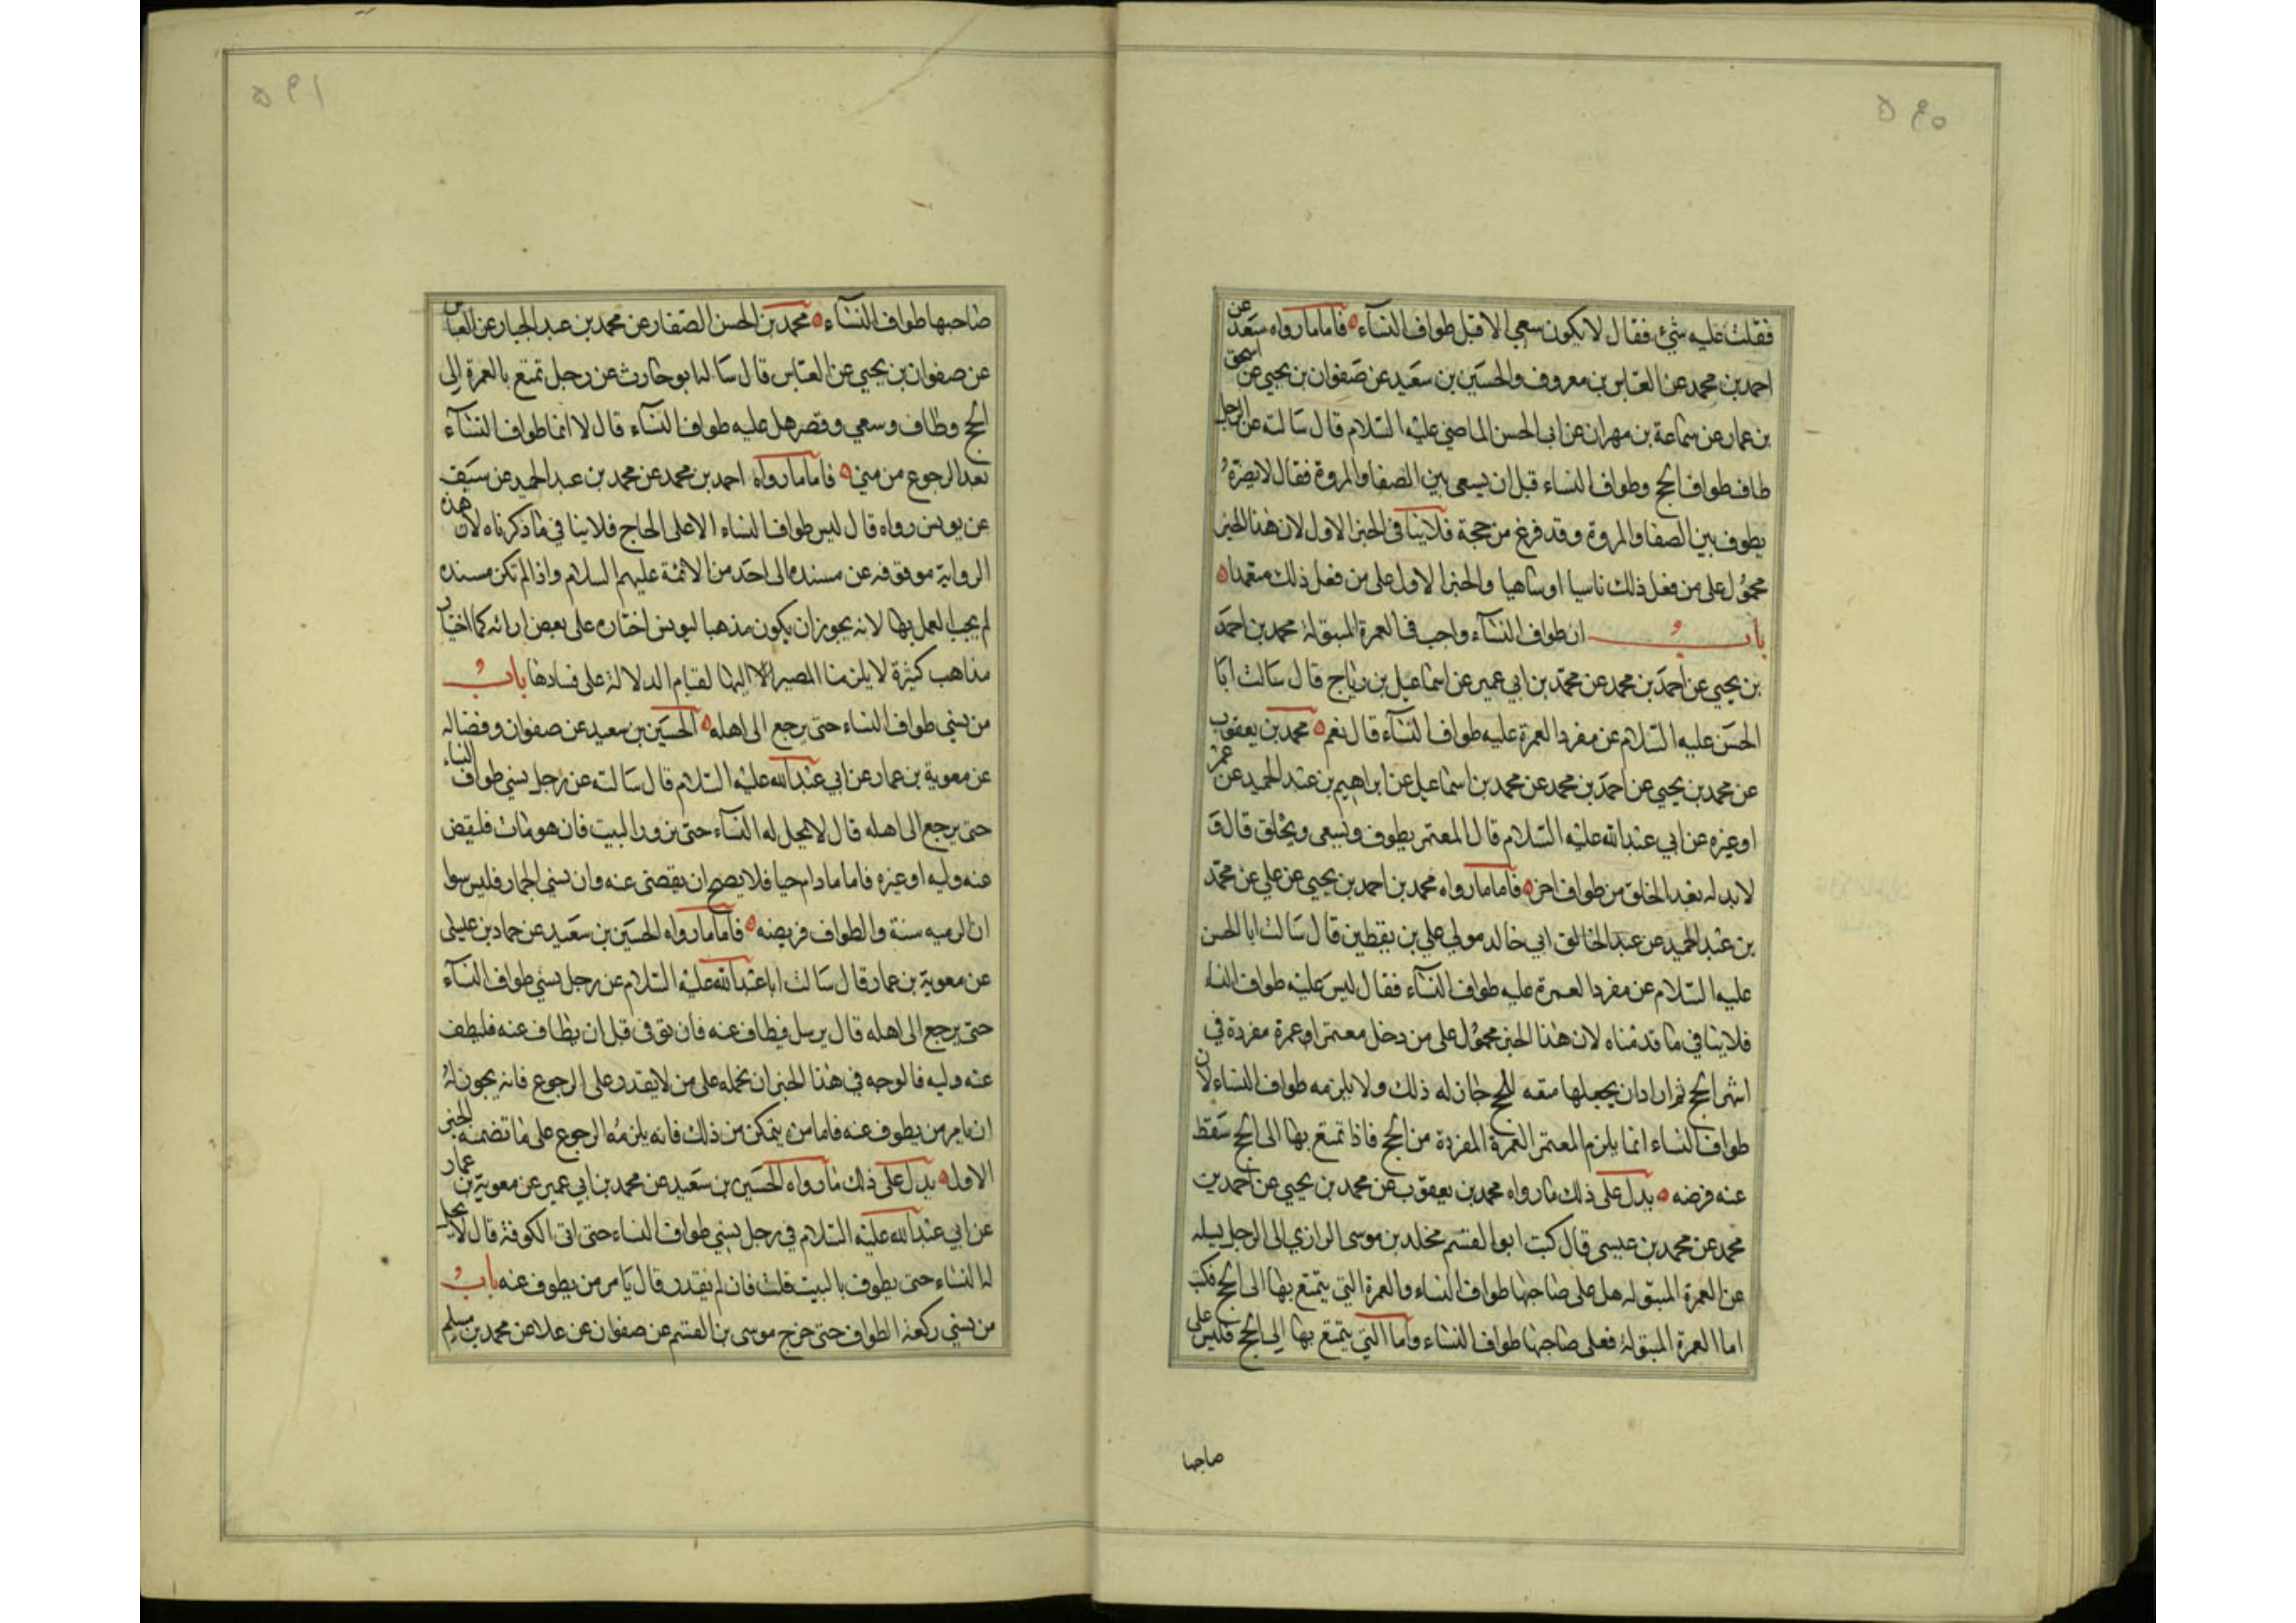 ٥٩٠
فقلت عليه شئ فقال لا يكون سعي الا قبل طواف النساء فاما ما رواه سعد عن
احمد بن محمد عن العباس بن معروف والحسين بن سعيد عن صفوان بن يحيى عن اسحق
بن عمار عن سماعة بن مهران عن ابي الحسن الماضي عليه السلام قال سالته عن الرجل
طاف طواف الحج وطواف النساء قبل ان يسعى بين الصفا والمروة فقال لا يضره
يطوف بين الصفا والمروة وقد فرغ من حجة فلا ينافي الخبر الاول لان هذا الخبر
محمول على من فعل ذلك ناسيا او ساهيا والخبر الاول على من فعل ذلك متعمدا
باب ان طواف النساء واجب في العمرة المبتولة محمد بن احمد
بن يحيى عن احمد بن محمد عن محمد بن ابي عمير عن اسماعيل بن رباح قال سالت ابا
الحسن عليه السلام عن مفرد العمرة عليه طواف النساء قال نعم محمد بن يعقوب
عن محمد بن يحيى عن احمد بن محمد عن محمد بن اسماعيل عن ابراهيم بن عبد الحميد عن عمر
او غيره عن ابي عبد الله عليه السلام قال المعتمر يطوف ويسعى ويحلق قال و
لا بد له بعد الحلق من طواف اخر فاما ما رواه محمد بن احمد بن يحيى عن علي عن محمد
بن عبد الحميد عن عبد الخالق ابي خالد مولى علي بن يقطين قال سالت ابا الحسن
عليه السلام عن مفرد العمرة عليه طواف النساء فقال ليس عليه طواف النساء
فلا ينافي ما قدمناه لان هذا الخبر محمول على من دخل معتمرا وعمرة مفردة في
اشهر الحج ثم اراد ان يجعلها متعه للحج جاز له ذلك ولا يلزمه طواف النساء لان
طواف النساء انما يلزم المعتمر العمرة المفردة من الحج فاذا تمتع بها الى الحج سقط
عنه فرضه يدل على ذلك ما رواه محمد بن يعقوب عن محمد بن يحيى عن احمد بن
محمد عن محمد بن عيسى قال كتب ابو القسم مخلد بن موسى الرازي الى الرجل يسله
عن العمرة المبتوله هل على صاحبها طواف النساء والعمرة التي يتمتع بها الى الحج فكتب
اما العمرة المبتولة فعلى صاحبها طواف النساء واما التي يتمتع بها الى الحج فليس على
صاحبها
٥٩١
صاحبها طواف النساء محمد بن الحسن الصفار عن محمد بن عبد الجبار عن العباس
عن صفوان بن يحيى عن العباس قال سالنا بو حارث عن رجل تمتع بالعمرة الى
الحج وطاف وسعي وقصر هل عليه طواف النساء قال لا انما طواف النساء
بعد الرجوع من منى فاما ما رواه احمد بن محمد عن محمد بن عبد الحميد عن سيف
عن يونس رواه قال ليس طواف النساء الا على الحاج فلا ينافي ما ذكرناه لان هذه
الرواية موقوفه عن مسنده الى احد من الائمة عليهم السلام واذا لم تكن مسنده
لم يجب العمل بها لانه يجوز ان يكون مذهبا ليونس اختاره على بعض ارائه كما اختار
مذاهب كثيرة لا يلزمنا المصير اليها لقيام الدلالة على فسادها باب
من نسي طواف النساء حتى يرجع الى اهله الحسين بن سعيد عن صفوان وفضاله
عن معوية بن عمار عن ابي عبد الله عليه السلام قال سالته عن رجل نسي طواف النساء
حتى يرجع الى اهله قال لا يحل له النساء حتى يزور البيت فان هو مات فليقض
عنه وليه او غيره فاما ما دام حيا فلا يصح ان يقضى عنه وان نسي الجمار فليس سوا
ان الرميه سنة والطواف فريضه فاما ما رواه الحسين بن سعيد عن حماد بن عيسى
عن معوية بن عمار قال سالت ابا عبد الله عليه السلام عن رجل نسي طواف النساء
حتى يرجع الى اهله قال يرسل فيطاف عنه فان توفى قبل ان يطاف عنه فليطف
عنه وليه فالوجه في هذا الخبر ان نحمله على من لا يقدر على الرجوع فانه يجوز له
ان يامر من يطوف عنه فاما من يتمكن من ذلك فانه يلزمه الرجوع على ما تضمنه الخبر
الاول يدل على ذلك ما رواه الحسين بن سعيد عن محمد بن ابي عمير عن معوية بن عمار
عن ابي عبد الله عليه السلام في رجل نسي طواف النساء حتى اتى الكوفة قال لا يحل
له النساء حتى يطوف بالبيت قلت فان لم يقدر قال يامر من يطوف عنه باب
من نسي ركعة الطواف حتى خرج موسى بن القسم عن صفوان عن علا عن محمد بن مسلم